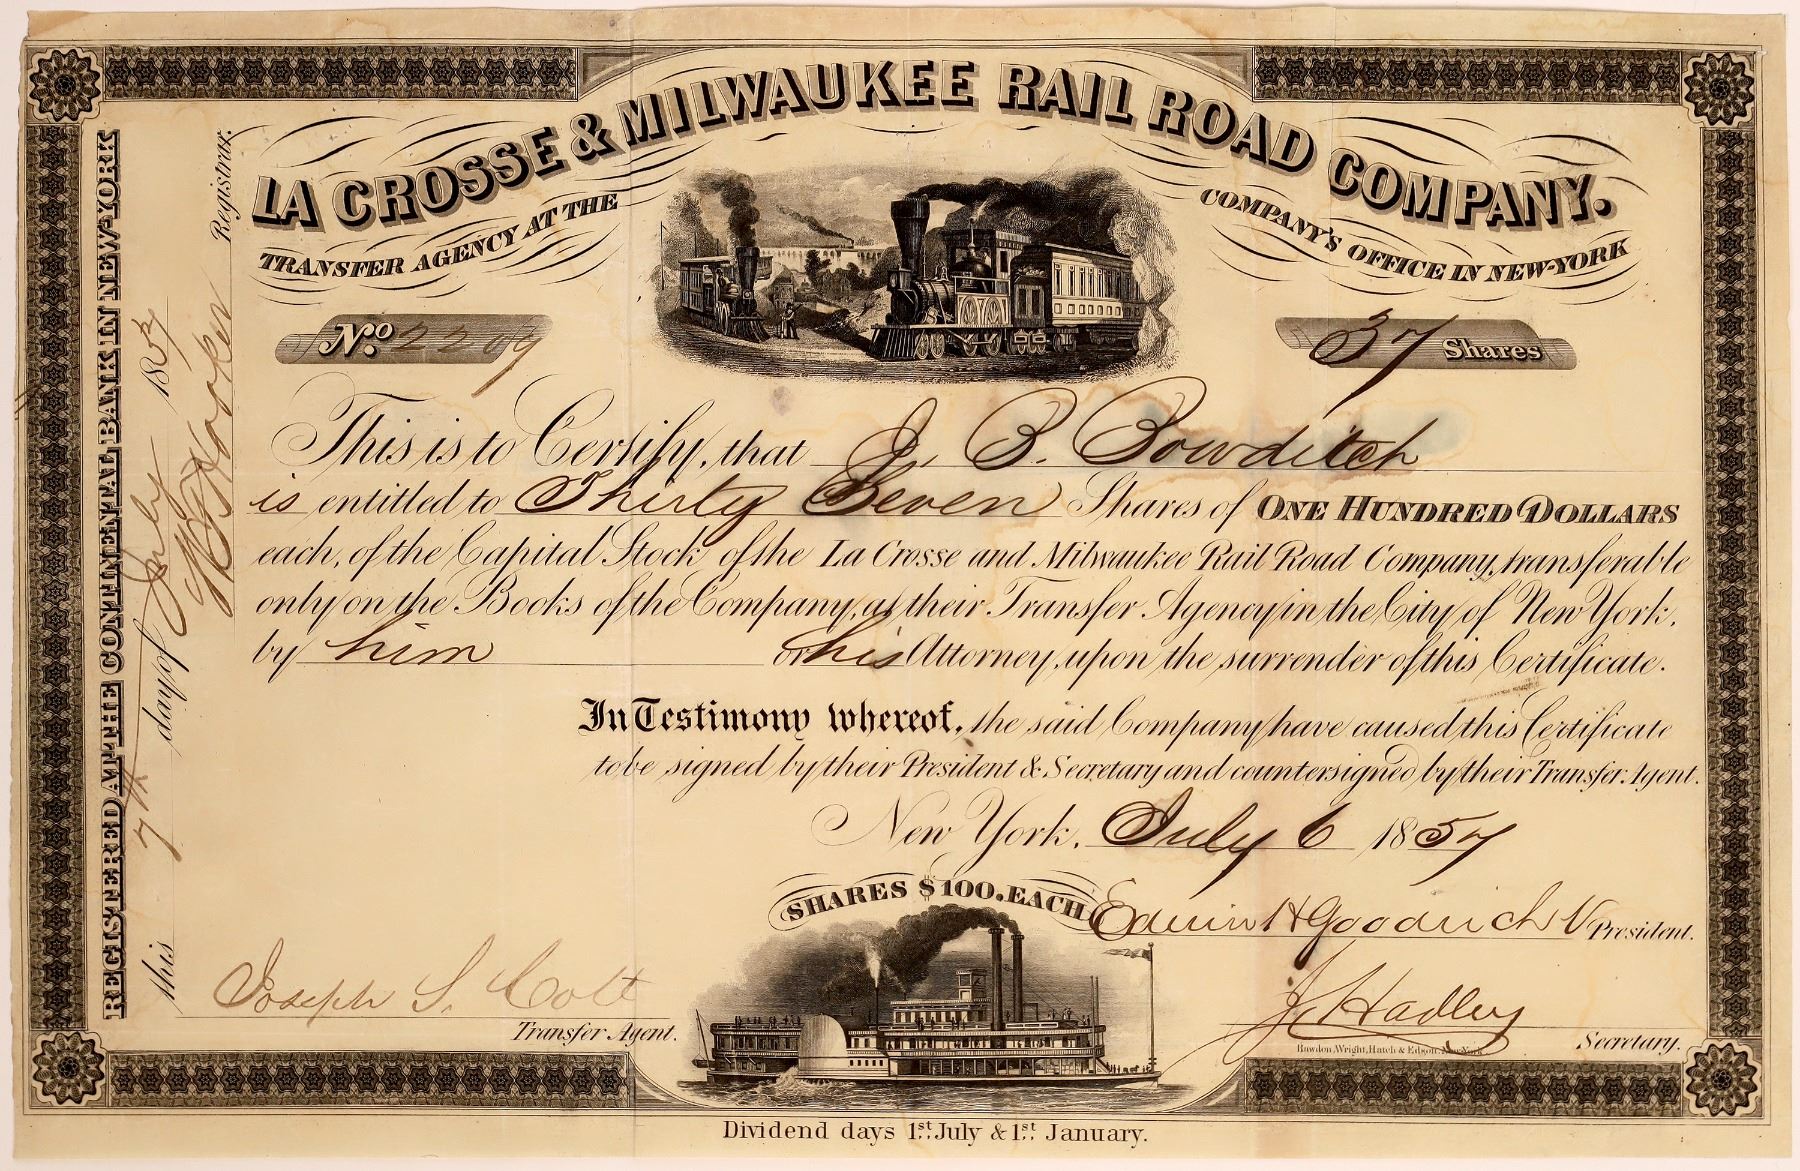 LA CROSSE & MILWAUKEE RAIL ROAD COMPANY.
TRANSFER AGENCY AT THE COMPANY'S OFFICE IN NEW-YORK
No. 2209
37 Shares
This is to Certify, that J. B. Bowditch
is entitled to Thirty Seven Shares of ONE HUNDRED DOLLARS
each, of the Capital Stock of the La Crosse and Milwaukee Rail Road Company, transferable
only on the Books of the Company, at their Transfer Agency in the City of New York,
by him or his Attorney, upon the surrender of this Certificate.
In Testimony whereof, the said Company have caused this Certificate
to be signed by their President & Secretary and countersigned by their Transfer Agent.
New York, July 6 1857
SHARES $100. EACH
Edwin H Goodrich V President.
Joseph S. Colt
Transfer Agent.
J. Hadley
Secretary.
Bawdon, Wright, Hatch & Edson, New-York
Dividend days 1st July & 1st January.
REGISTERED AT THE CONTINENTAL BANK IN NEW-YORK
this 7th day of July 1857
Hooker
Registrar.